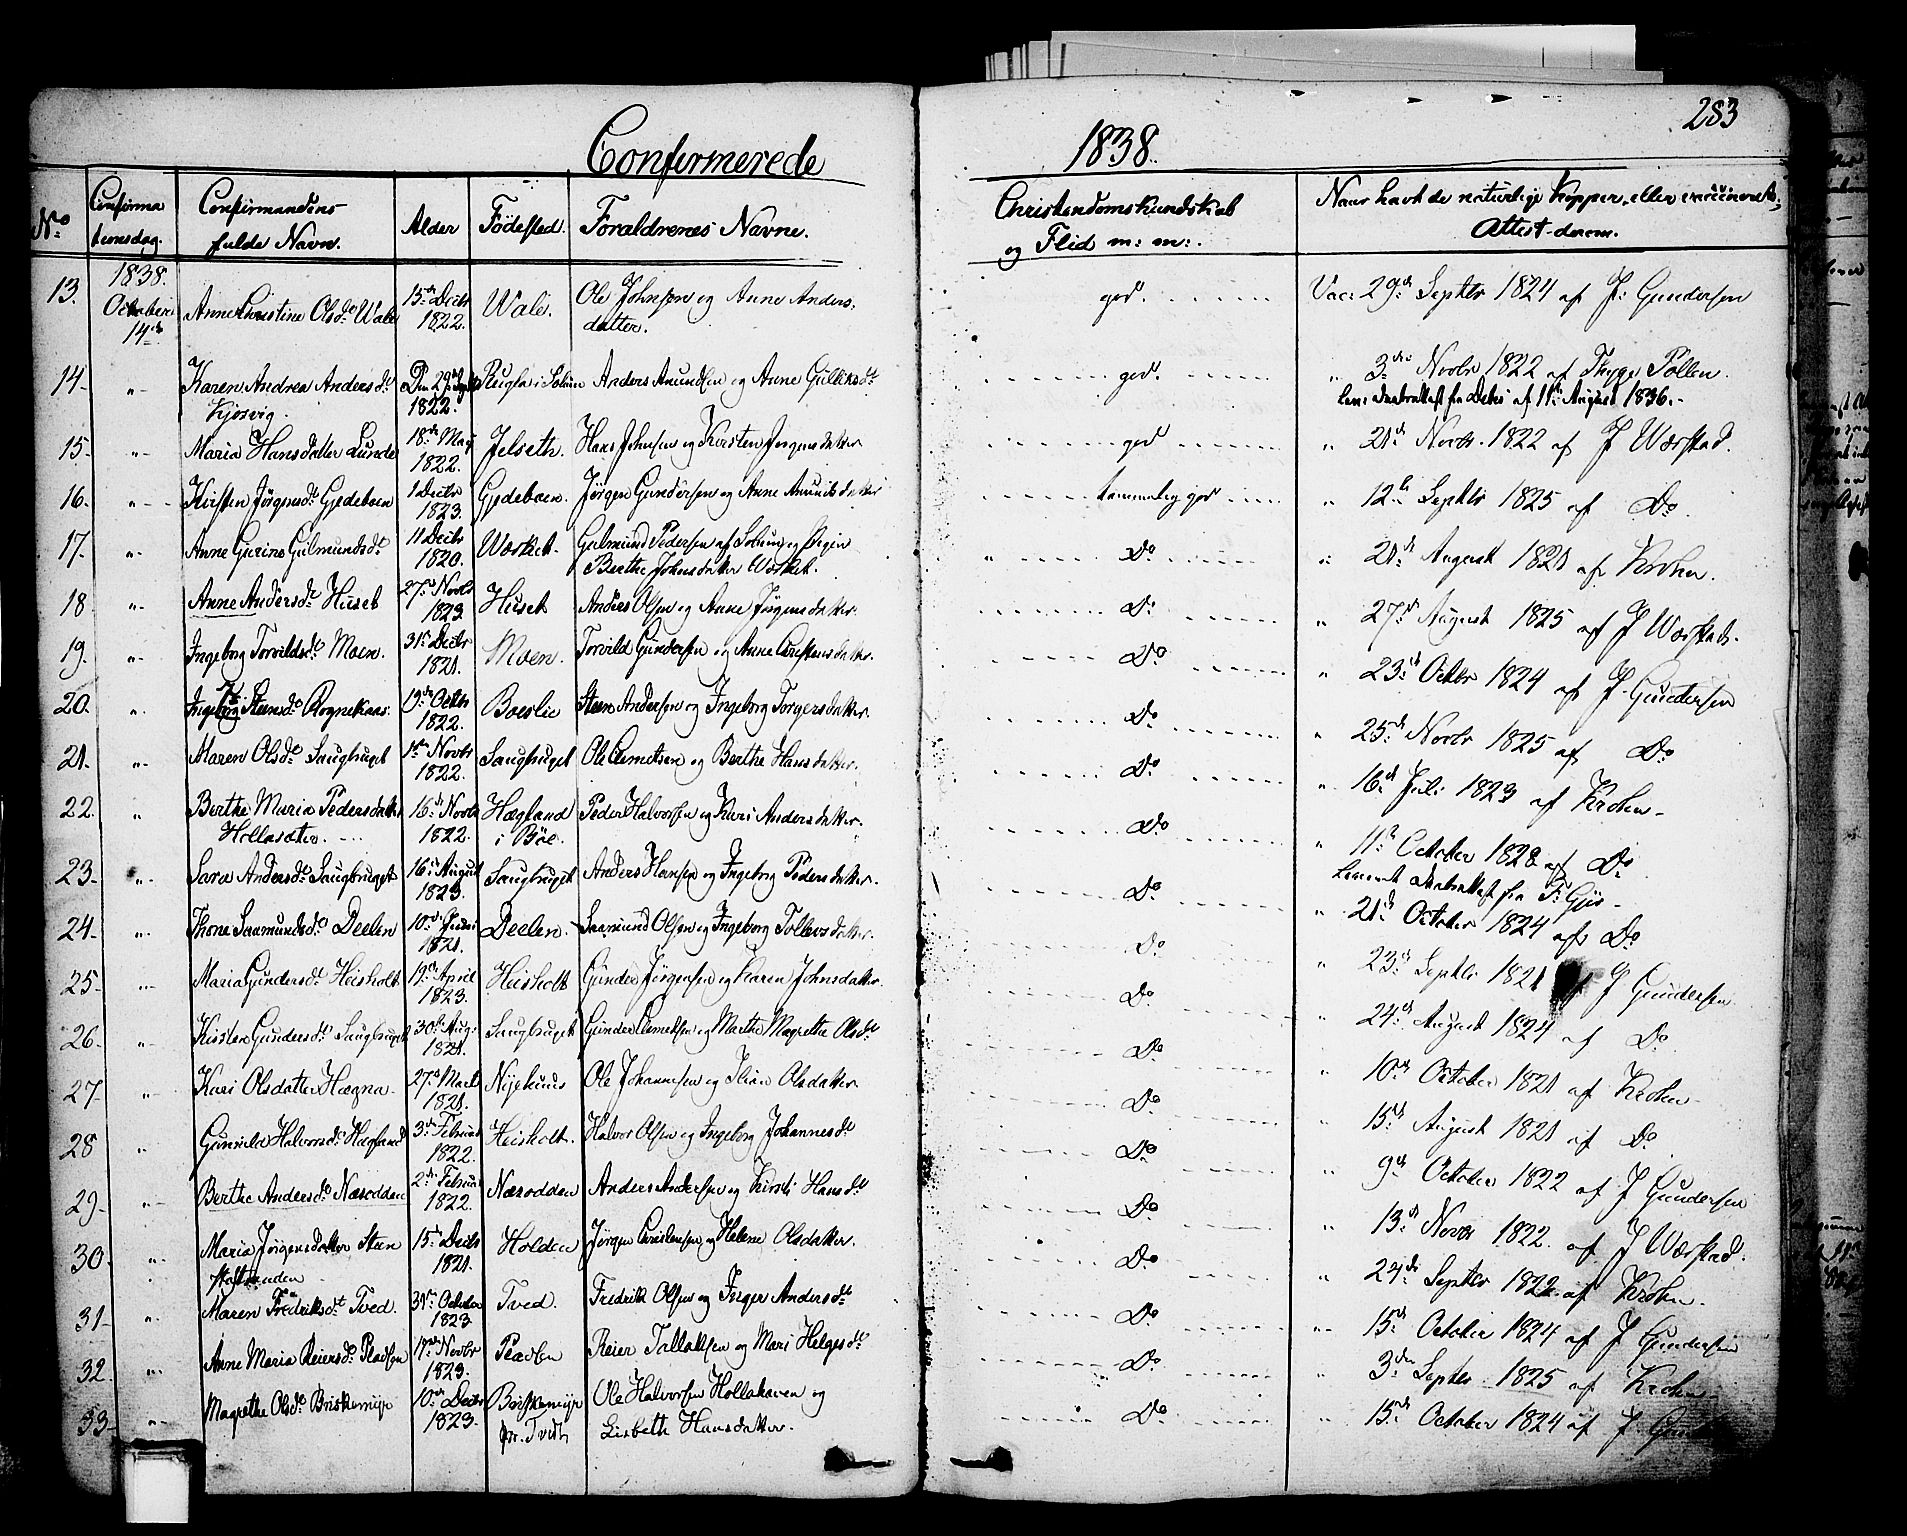 283
Confirmerede 1838.
No Confirmationsdag. Confirmandens fulde Navn. Alder Födested. Foraldrenes Navne. Christendomskundskab og Flid m: m: Naar havt de naturlige Kopper, eller vaccineret, Attest derom.
13. 1838. October 14de Anne Christine Olsd. Wale 15de Decbr 1822. Wale. Ole Johnsen og Anne Anders: datter. god. Vac: 29de Septbr 1824 af J: Gundersen
14. „ Karen Andrea Andersd. Kjosvig. 1822. Anders Amundsen og Anne Gulliksd. god. „ 3die Novbr 1822 af Thygge Pollen.
af 11te August 1836.
15. „ Maria Hansdatter Lunde 18de May 1822. Jelseth. Hans Johnsen og Kirsten Jörgensdatter god „ 21de Novbr. 1822 af J Wærstad.
16. „ Kirsten Jörgensd. Gjedeboen 1 Decbr 1823. Gjedeboen. Jörgen Gundersen og Anne Amundsdatter temmelig god „ 12te Septbr 1825 af Do
17. „ Anne Gurine Gulmundsd. 11 Decbr 1820. Wærket. Gulmund Pedersen af Solum og Pigen Berthe Johnsdatter Wærket. Do „ 21de August 1821 af Krohn.
18 „ Anne Andersd. Huset 27de Novbr 1823. Huset Anders Olsen og Anne Jörgensdatter. Do „ 27de August 1825 af J Wærstad.
19. „ Ingeborg Torvildsd. Moen. 31te Decbr 1821. Moen. Torvild Gundersen og Anne Christensdatter. Do „ 23de Octbr 1824 af J. Gundersen
20. „ Ingeborg Steensd. Rognekaas. 13de Octbr 1822. Boeslie Steen Andersen og Ingeborg Torgersdatter. Do „ 25de Novbr 1825 af Do
21. „ Maren Olsd. Saugbruget 1ste Novbr 1822. Saugbruget Ole Clemetsen og Berthe Hansdatter. Do „ 16de Juli 1823 af Krohn.
22. „ Berthe Maria Pedersdatter Hollasæter. 16de Novbr 1822. Hægland i Böe. Peder Halvorsen og Kari Andersdatter. Do „ 11te October 1828 af Do
23. „ Sara Andersd. Saugbruget 16de August 1823. Saugbruget Anders Hansen og Ingeborg Pedersdatter. Do „ 21de October 1824 af Do
24. „ Thone Saamundsd. Deelen 10de 1821. Deelen. Saamund Olsen og Ingeborg Tollevsdatter. Do „ 23de Septbr 1821 J Gundersen
25. „ Maria Gundersd. Heisholt 19de April 1823. Heisholt Gunder Jörgensen og Karen Johnsdatter. Do „ 24de August 1824 af Do
26. „ Kirsten Gundersd. Saugbruget 30te Aug: 1821. Saugbruget Gunder Clemetsen og Marthe Magrethe Olsd. Do „ 10de October 1821 af Krohn.
27. „ Kari Olsdatter Hægna. 27de Marts 1821. Nyehuus Ole Johannesen og Olsdatter Do „ 15de August 1821 af Do
28 „ Gunild Halvorsd. Hægland 3de Februar 1822. Heisholt. Halvor Olsen og Ingeborg Johannesd. Do „ 9de October 1822 af J Gundersen
29. „ Berthe Andersd. Næsodden 2den Februar 1822. Næsodden Anders Andersen og Kirsti Hansd. Do „ 13de Novbr 1822. af J Wærstad.
30. „ Maria Jörgensdatter Steenstoftranden 15de Decbr 1821. Holden Jörgen Christensen og Helene Olsdatter. Do „ 24de Septbr 1822 af Krohn.
31. „ Maren Fredriksd. Tved 31te October 1823. Tved. Fredrik Olsen og Inger Andersd. Do „ 15de October 1824 af J Gundersen
32. „ Anne Maria Reiersd. Pladsen 17de Novbr 1823. Pladsen Reier Tallaksen og Mari Helgesd. Do „ 3die Septbr 1825 af Krohn.
33. „ Magrethe Olsd. Briskemyr 10de Decbr 1823. Briskemyr Ole Halvorsen Hollahaven og Lisbeth Hansdatter. Do „ 15de October 1824 af J.